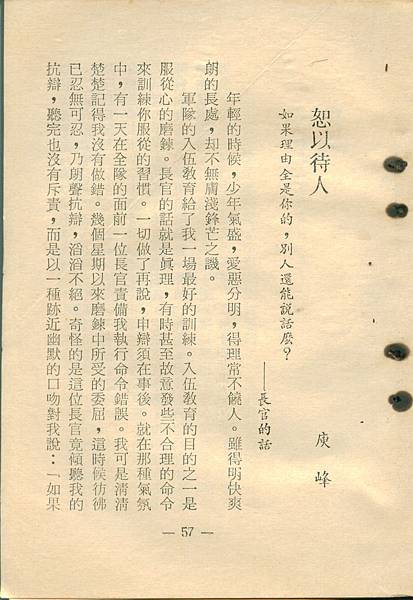 恕以待人
庾峰
如果理由全是你的，別人還能説話麽？
——長官的話
年輕的時候，少年氣盛，愛惡分明，得理常不饒人。雖得明快爽
朗的長處，却不無膚淺鋒芒之譏。
軍隊的入伍敎育給了我一場最好的訓練。入伍敎育的目的之一是
服從心的磨鍊。長官的話就是眞理，有時甚至故意發些不合理的命令
來訓練你服從的習慣。一切做了再說，申辯須在事後。就在那種氣氛
中，有一天在全隊的面前一位長官責備我執行命令錯誤。我可是淸淸
楚楚記得我沒有做錯。幾個星期以來磨鍊中所受的委屈，這時候彷彿
已忍無可忍，乃朗聲抗辯，滔滔不絕。奇怪的是這位長官竟傾聽我的
抗辯，聽完也沒有斥責，而是以一種跡近幽默的口吻對我說：「如果
— 57 —